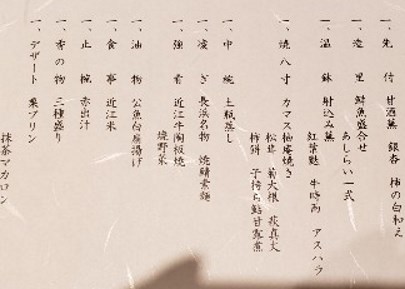 一、先付 甘酒蕪 銀杏 柿の白和え
一、造里 鮮魚盛合せ
あしらい一式
一、温鉢 射込み蕪
紅葉麩 牛時雨 アスパラ
一、焼八寸 カマス柚庵焼き
松茸 菊大根 萩真丈
柿餅 子持ち鮎甘露煮
一、中椀 土瓶蒸し
一、凌ぎ 長浜名物 焼鯖素麺
一、強肴 近江牛陶板焼
焼野菜
一、油物 公魚白扇揚げ
一、食事 近江米
一、止椀 赤出汁
一、香の物 三種盛り
一、デザート 栗プリン
抹茶マカロン